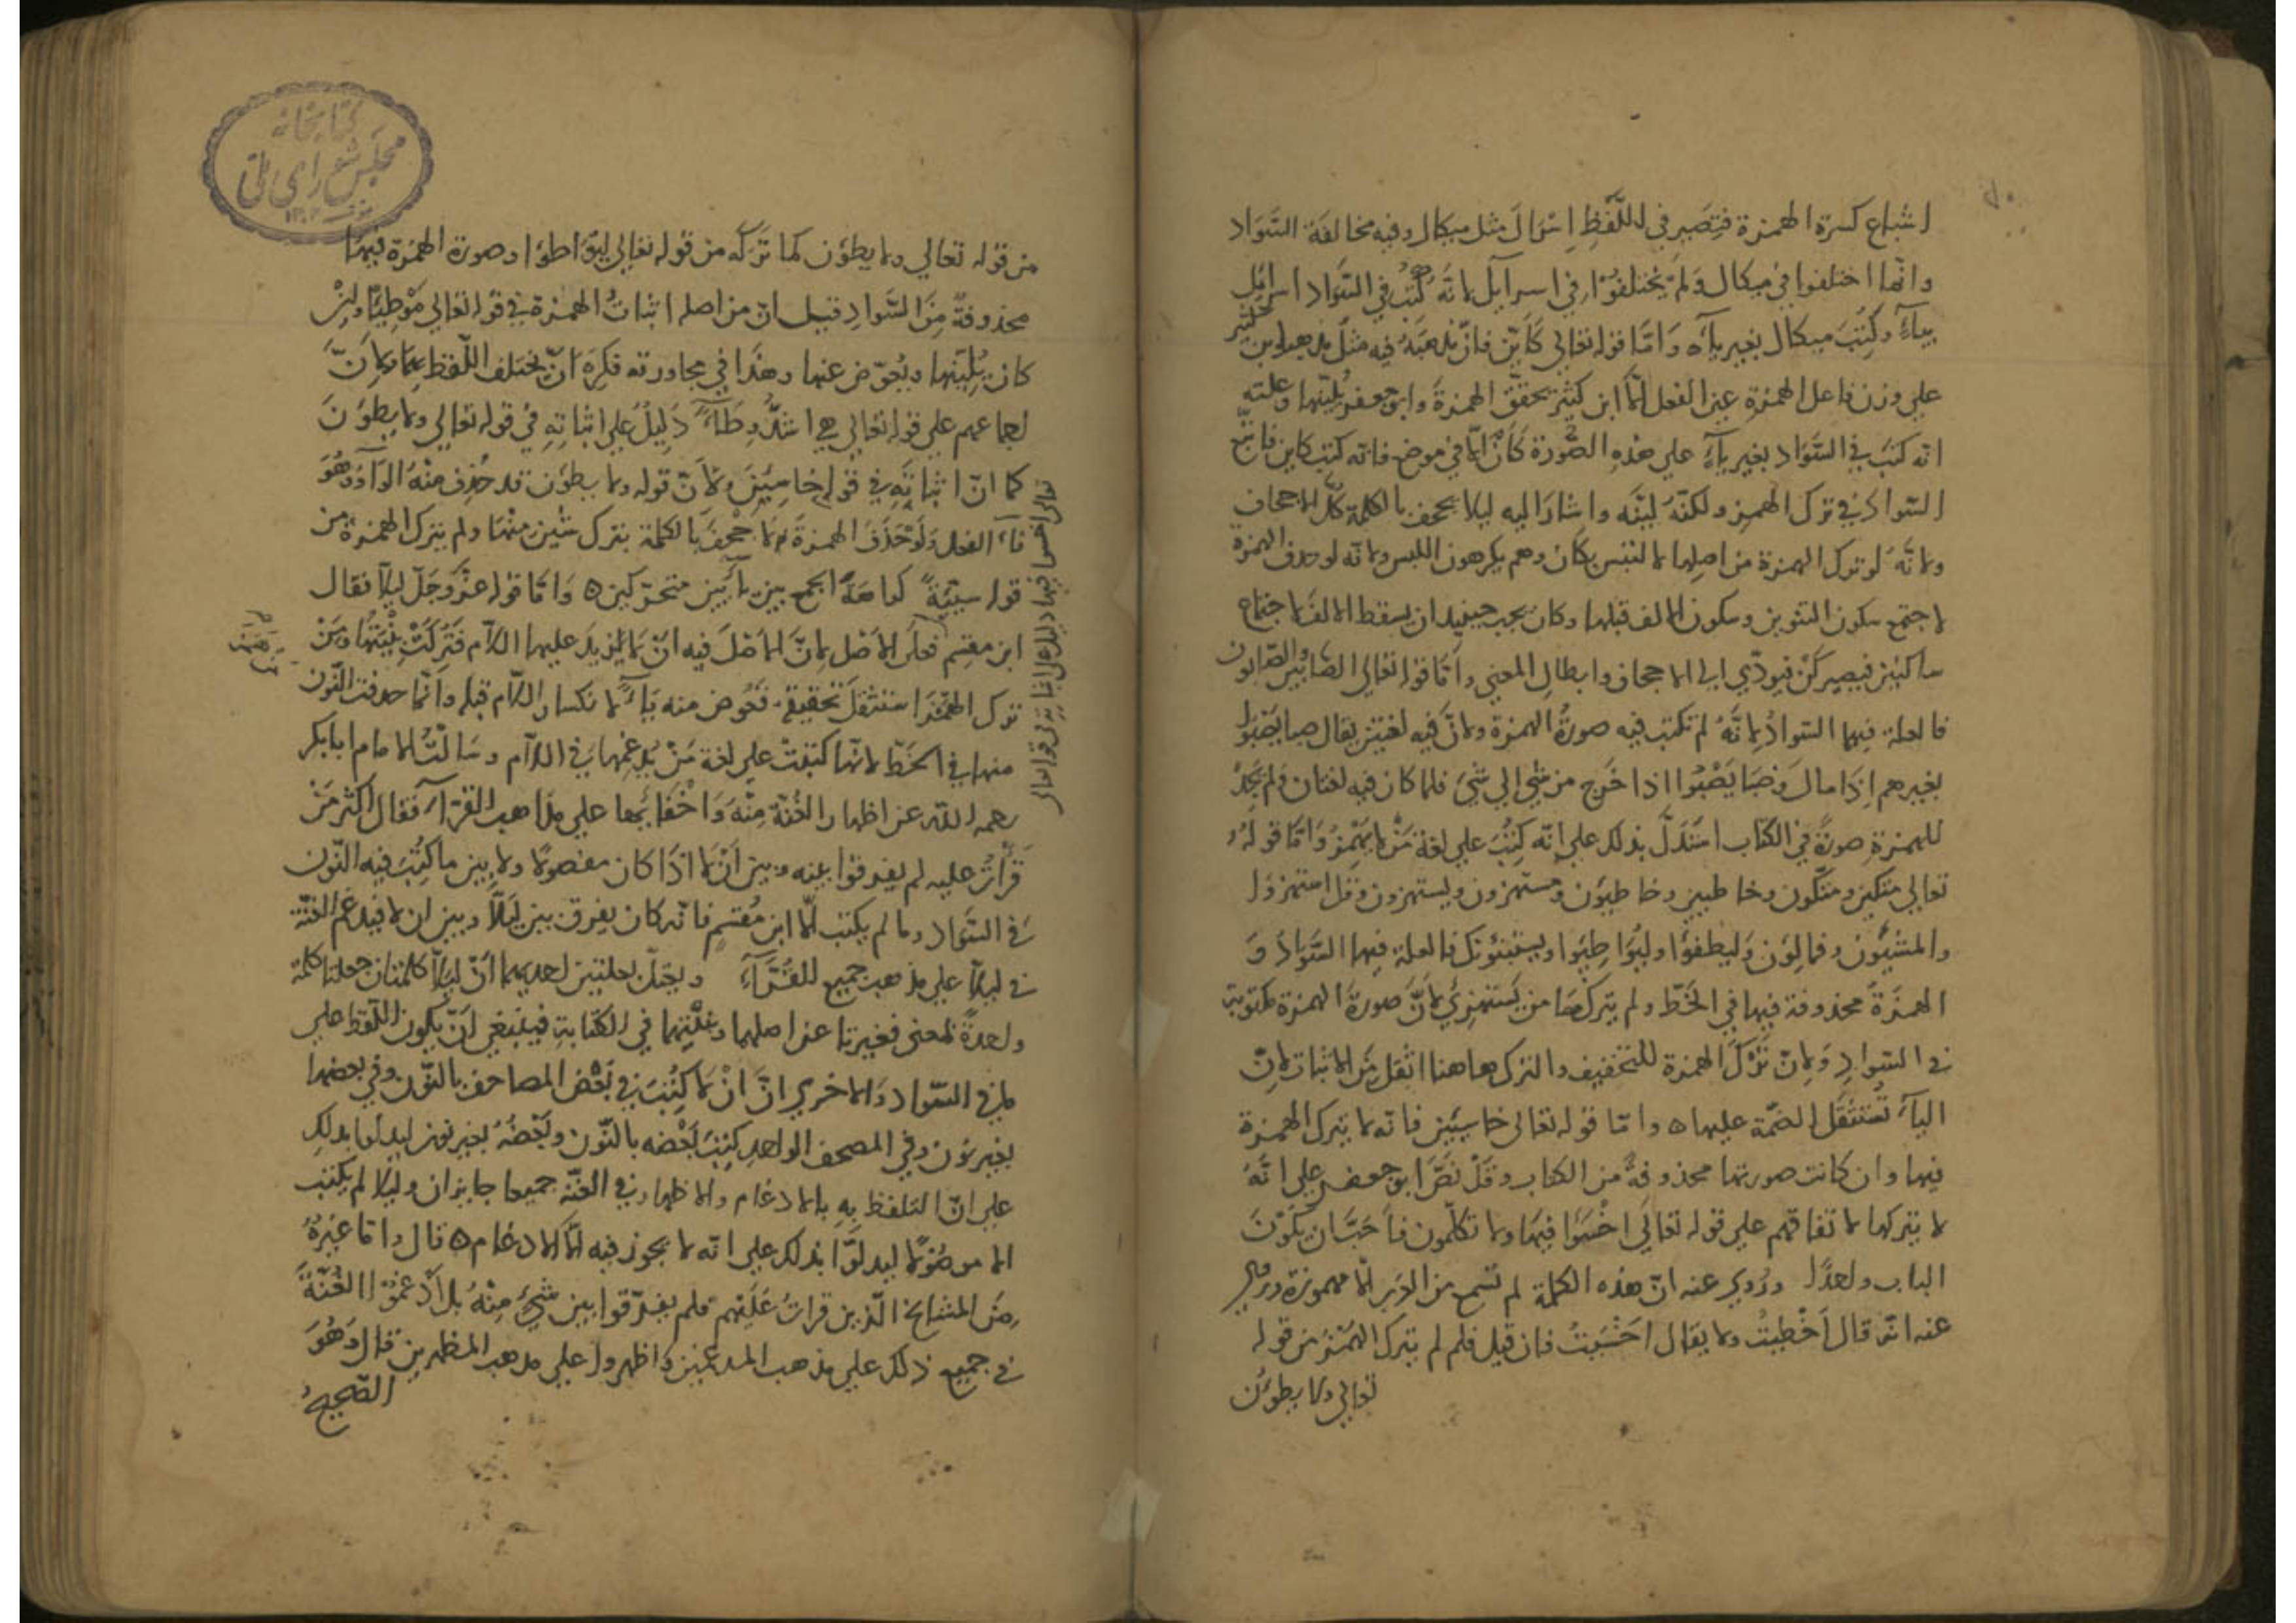 اشباع كسرة الهمزة فتصير في اللفظ اسرال مثل ميكال وفيه مخالفة السواد
وانما اختلفوا في ميكال ولم يختلفوا في اسرايل لانه كتب في السواد اسرايل
بياء وكتب ميكال بغير ياء واما قوله تعالي كاين فان مذهبه فيه مثل مذهب ابن كثير
علي وزن فاعل الهمزة عين الفعل الا ابن كثير يحقق الهمزة وابو جعفر يلينها وعلته
انه كتب في السواد بغير ياء علي هذه الصورة كان الا في موضع فانه كتب كاين فاتبع
السواد في ترك الهمز ولكنه لينه واشار اليه ليلا يجحف بالكلمة كل الاجحاف
ولانه لو ترك الهمزة من اصلها لالتبس بكان وهم يكرهون اللبس ولانه لو حذف الهمزة
لاجتمع سكون التنوين وسكون الالف قبلها وكان يجب حينيذ ان يسقط الالف لاجتماع
ساكنين فيصير كن فيودي الي الاجحاف وابطال المعني واما قوله تعالي الصابين والصابون
فالعلة فيهما السواد لانه لم تكتب فيه صورة الهمزة ولان فيه لغتين يقال صبا يصبوا
بغير همز اذا مال وصبا يصبوا اذا خرج من شي الي شي فلما كان فيه لغتان ولم يجد
للهمزة صورة في الكتاب استدل بذلك علي انه كتب علي لغة من لا يهمز واما قوله
تعالي متكين ومتكون وخاطيين وخاطيون ومستهزون ويستهزون وقل استهزوا
والمنشيون وفمالون وليطفوا وليواطيوا ويستنبئونك فالعلة فيها السواد و
الهمزة محذوفة فيها في الخط ولم يتركها من يستهزئ لان صورة الهمزة مكتوبة
في السواد ولان ترك الهمزة للتخفيف والترك هاهنا اثقل من الاثبات لان
الياء تستثقل الضمة عليها ه واما قوله تعالي خاسيين فانه لا يترك الهمزة
فيها وان كانت صورتها محذوفة من الكتاب وقد نص ابو جعفر علي انه
لا يتركها لاتفاقهم علي قوله تعالي اخسوا فيها ولا تكلمون فاحب ان يكون
الباب واحدا وروي عنه ان هذه الكلمة لم تسمع من العرب الا مهموزة وروي
عنه انه قال اخطيت ولا يقال اخسيت فان قيل فلم لم يترك الهمز من قوله
تعالي ولا يطون
من قوله تعالي ولا يطون كما تركه من قوله تعالي ليواطوا وصورة الهمزة فيهما
محذوفة من السواد قيل ان من اصله اثبات الهمزة في قوله تعالي موطيا وان
كان يلينها ويعوض عنها وهذا في مجاورته فكره ان يختلف اللفظ بهما ولان
اجماعهم علي قوله تعالي هي اشد وطاء دليل علي اثباته في قوله تعالي ولا يطون
كما ان اثباته في قوله خاسيين ولان قوله ولا يطون قد حذف منه الواو وهو
فاء الفعل ولو حذف الهمزة لاجحف بالكلمة بترك شيين منها ولم يترك الهمزة من
قوله سيية كراهة الجمع بين يايين متحركين ه واما قوله عز وجل ليلا فقال
ابن مقسم فعلي الاصل لان الاصل فيه ان لا ثم زيد عليها اللام فتركت بنيتها ومن
ترك الهمز استثقل تحقيقه فعوض منه ياء لانكسار اللام قبله وانما حذفت النون
منها في الخط لانها كتبت علي لغة من يدغمها في اللام وسالت الامام ابا بكر
رحمه الله عن اظهار الغنة منه واخفايها علي مذاهب القراء فقال اكثر من
قرات عليه لم يفرقوا بينه وبين ان لا اذا كان مفصولا ولا بين ما كتب فيه النون
في السواد وما لم يكتب الا ابن مقسم فانه كان يفرق بين ليلا وبين ان لا فيدغم الغنة
في ليلا علي مذهب جميع القراء ويعتل بعلتين احديهما ان ليلا كلمتان جعلتا كلمة
واحدة لمعنى فغيرتا عن اصلهما وبنيتهما في الكتابة فينبغي ان يكون اللفظ علي
ما في السواد والاخري ان ان لا كتبت في بعض المصاحف بالنون وفي بعضها
بغير نون وفي المصحف الواحد كتب بعضه بالنون وبعضه بغير نون ليدلوا بذلك
علي ان التلفظ به بالادغام والاظهار في الغنة جميعا جايزان وليلا لم يكتب
الا موصولا ليدلوا بذلك علي انه لا يجوز فيه الا الادغام ه قال واما غيره
من المشايخ الذين قرات عليهم فلم يفرقوا بين شيء منه بل ادغموا الغنة
في جميع ذلك علي مذهب المدغمين واظهروا علي مذهب المظهرين قال وهو
الصحيح
كتابخانه
مجلس شورای ملی